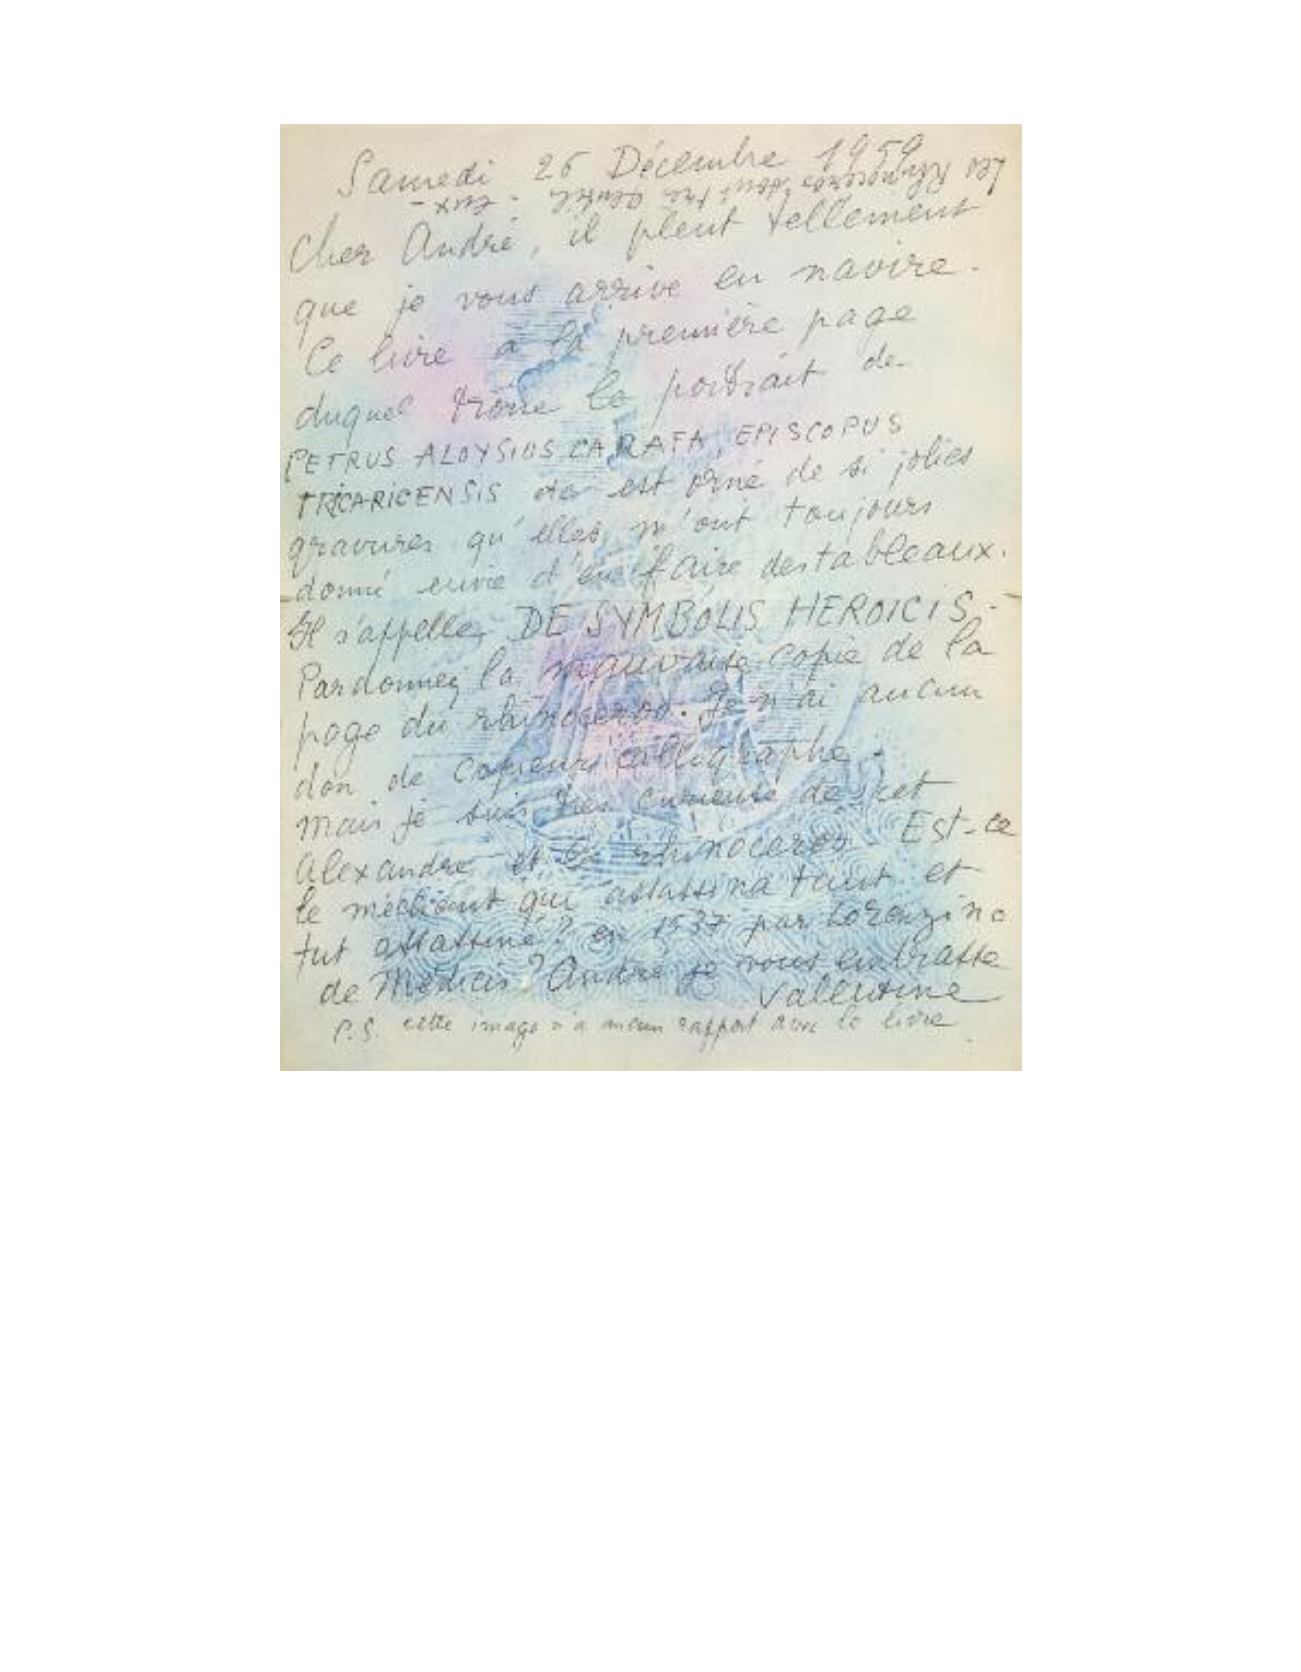 Samedi 26 Décembre 1959
Cher André, il pleut tellement
que je vous arrive en navire.
Ce livre à la première page
duquel trône le portrait de
PETRUS ALOYSIUS CARAFA, EPISCOPUS
TRICARICENSIS etc est orné de si jolies
gravures qu'elles m'ont toujours
donné envie d'en faire des tableaux.
Il s'appelle DE SYMBOLIS HEROICIS.
Pardonnez la mauvaise copie de la
page du rhinoceros. Je n'ai aucun
don de copieur calligraphe.
Mais je suis très curieuse de cet
Alexandre et le rhinoceros. Est-ce
le méchant qui assassina tant et
fut assassiné? en 1537 par Lorenzino
de Medicis? André je vous embrasse
Valentine
P.S. cette image n'a aucun rapport avec le livre